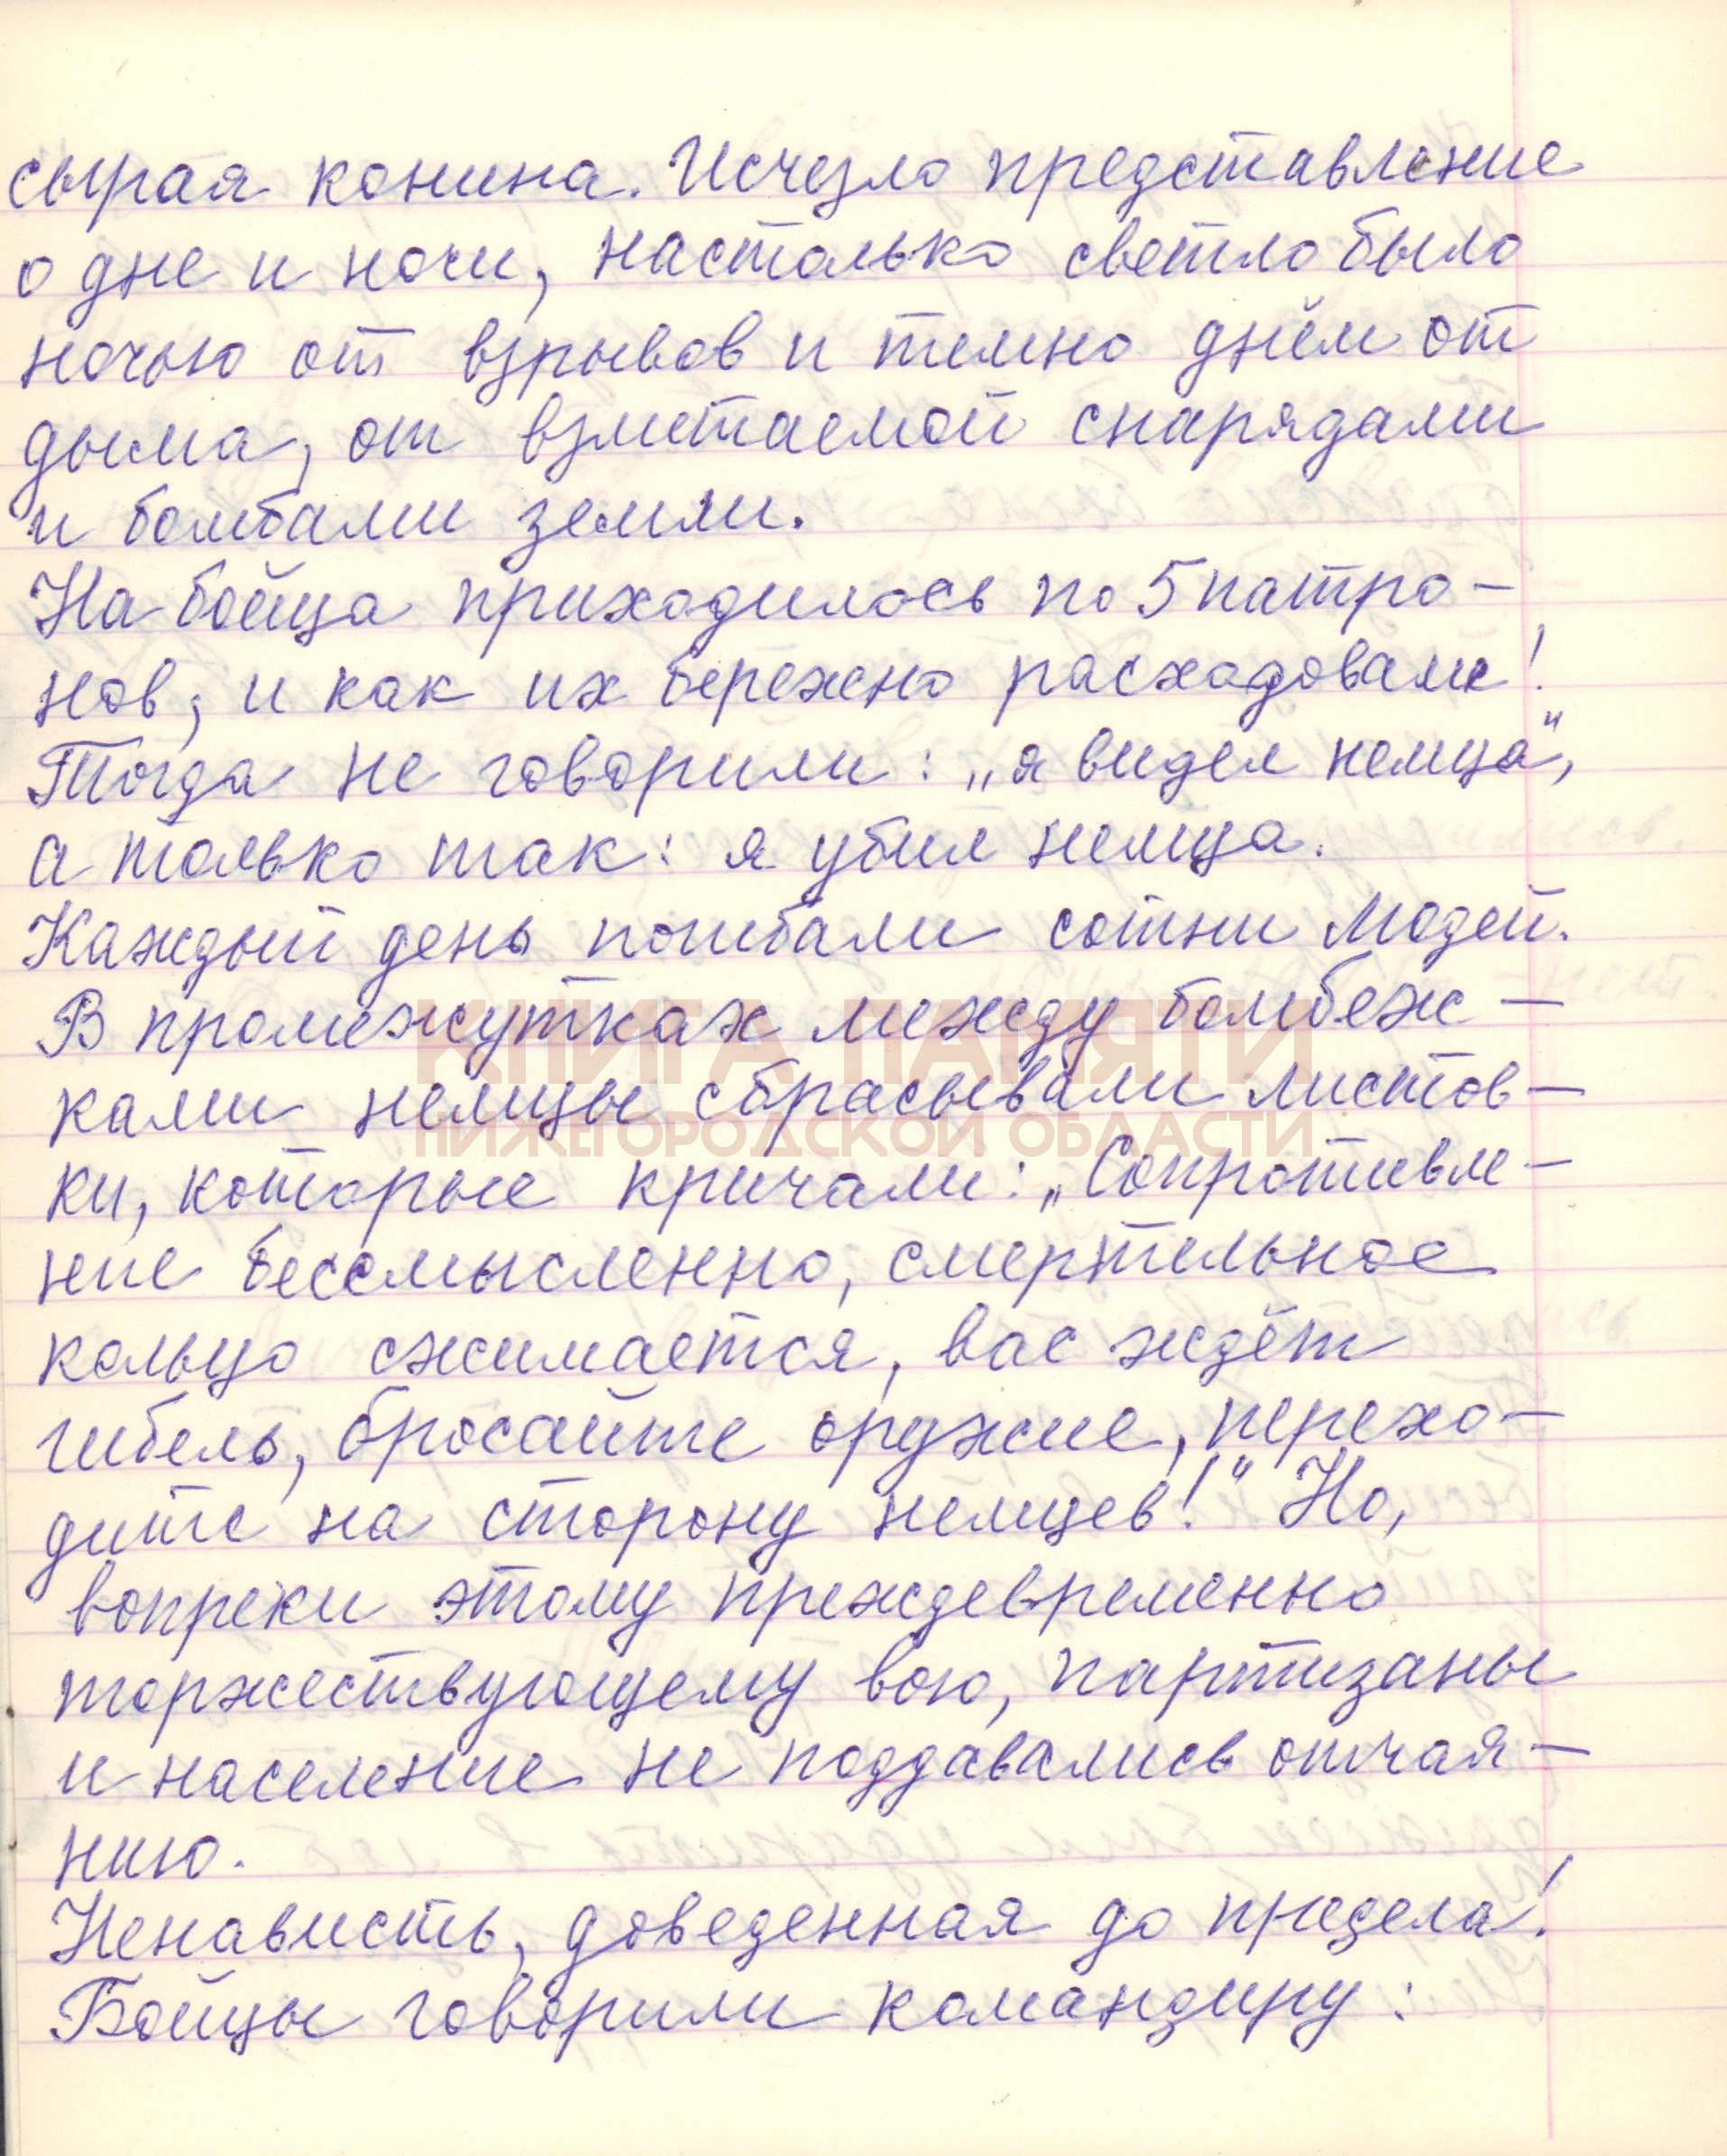 сырая конина. Исчезло представление
о дне и ночи, настолько светло было
ночью от взрывов и темно днём от
дыма, от взметаемой снарядами
и бомбами земли.
На бойца приходилось по 5 патро-
нов, и как их бережно расходовали!
Тогда не говорили: „я видел немца“,
а только так: я убил немца.
Каждый день погибали сотни людей.
В промежутках между бомбеж-
КНИГА ПАМЯТИ
ками немцы сбрасывали листов-
НИЖЕГОРОДСКОЙ ОБЛАСТИ
ки, которые кричали: „Сопротивле-
ние бессмысленно, смертельное
кольцо сжимается, вас ждёт
гибель, бросайте оружие, перехо-
дите на сторону немцев!“ Но,
вопреки этому преждевременно
торжествующему вою, партизаны
и население не поддавались отчая-
нию.
Ненависть, доведенная до предела!
Бойцы говорили командиру: